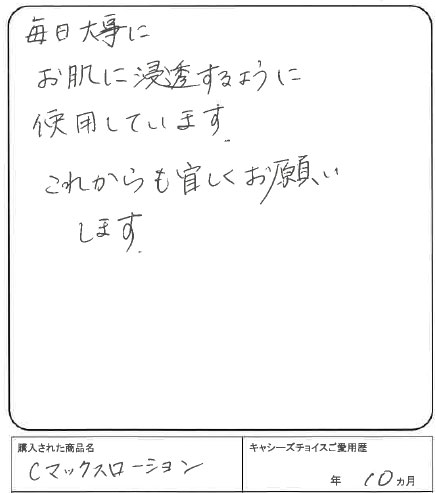 毎日大事に
お肌に浸透するように
使用しています.
これからも宜しくお願い
します.
購入された商品名
Cマックスローション
キャシーズチョイスご愛用歴
年 10ヵ月